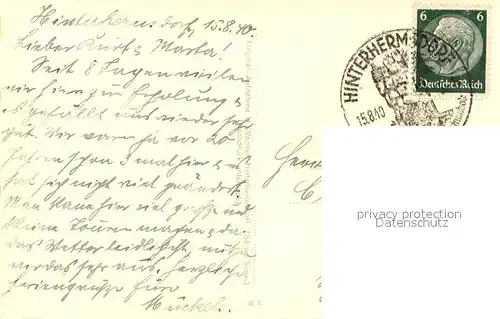 Hinterhermsdorf, 15.8.40.
Lieber Kurt & Marta!
Seit 8 Tagen weilen
wir hier zur Erholung &
es gefällt uns wieder sehr
gut. Wir waren ja vor 20
Jahren schon 3 mal hier & es
hat sich nicht viel geändert.
Man kann hier viel große und
kleine Touren machen & da
das Wetter leidlich ist nutzen
wir das sehr aus. Herzliche
Feriengrüße Eure
HINTERHERMSDORF
15.8.40
6 6
Deutsches Reich
privacy protection
Datenschutz